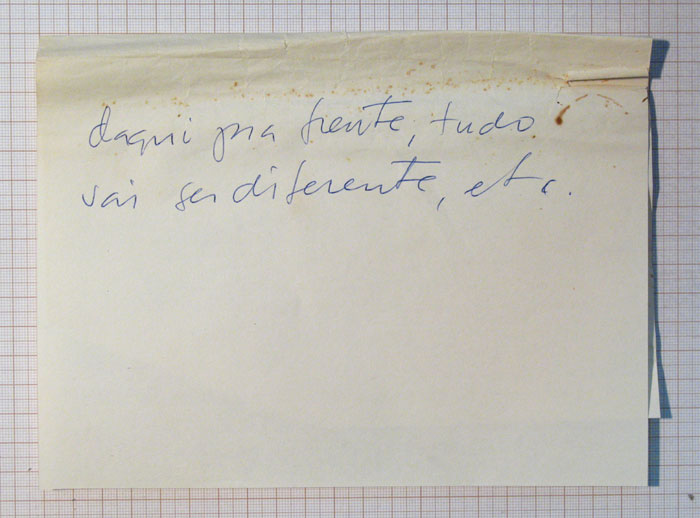 daqui pra frente, tudo
vai ser diferente, etc.